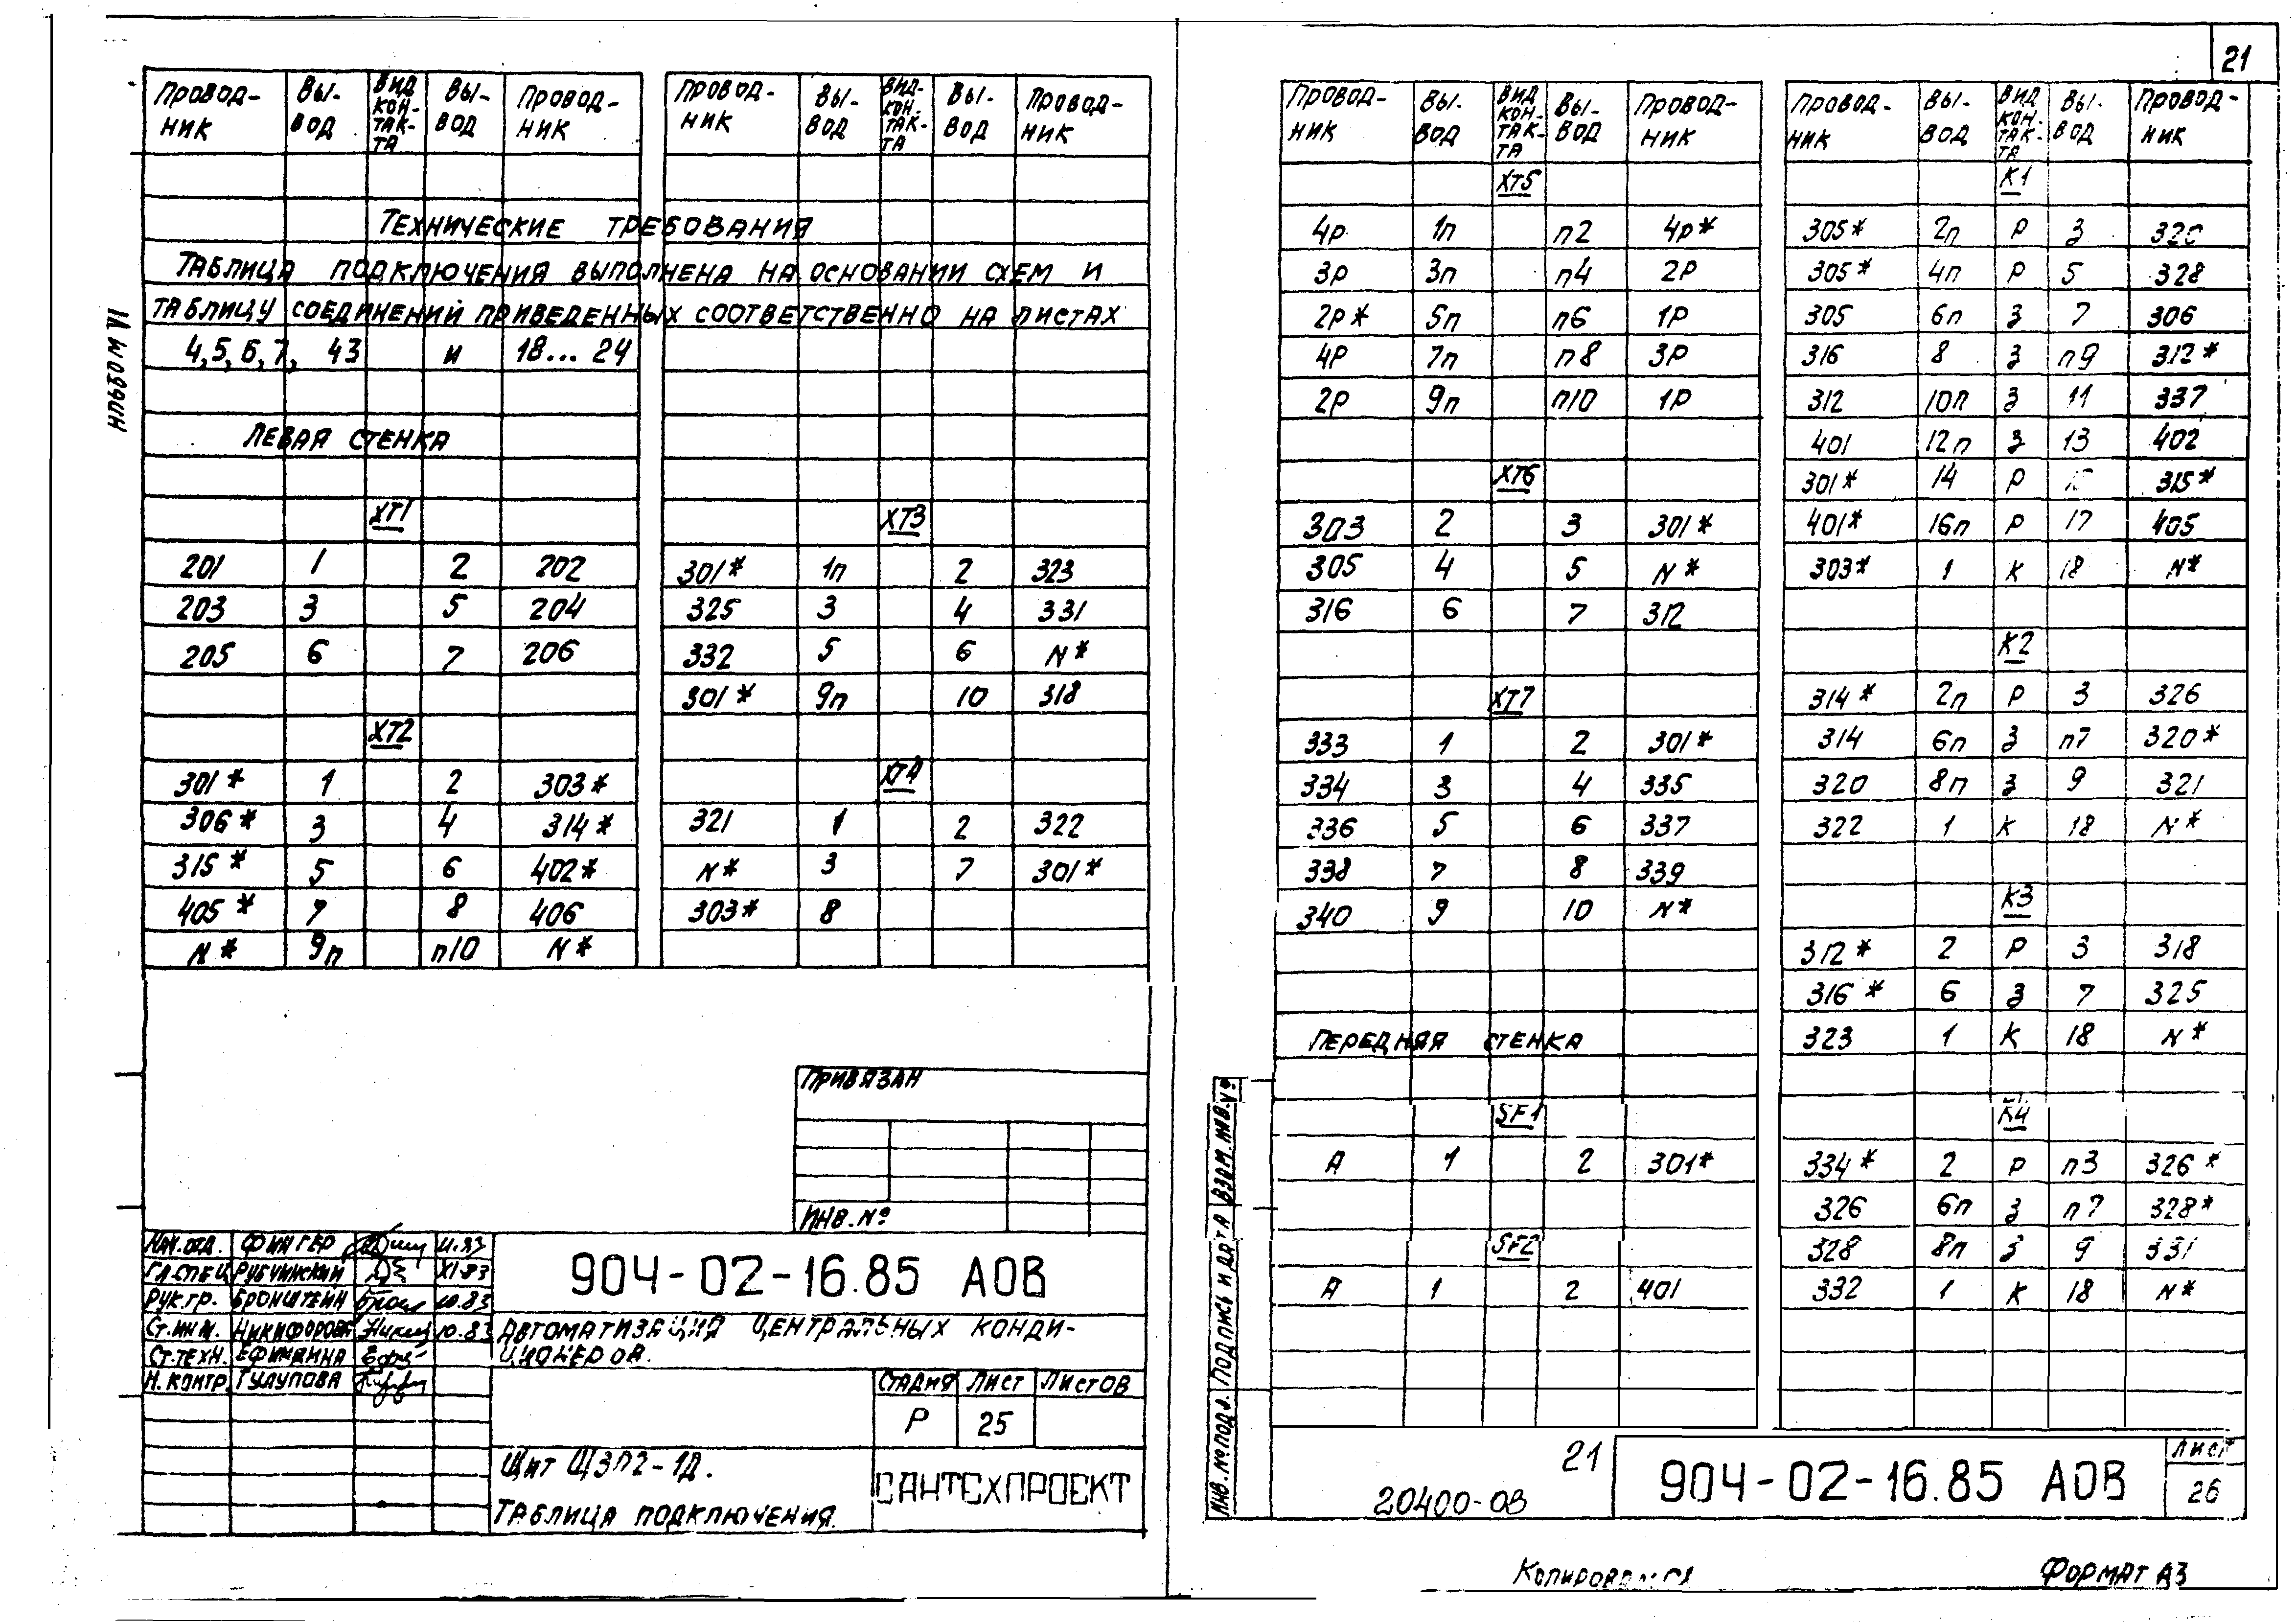 21
Альбом VI
Провод- Вы- Вид Вы- Провод-
ник вод кон- вод ник
так-
та
Технические требования
Таблица подключения выполнена на основании схем и
таблицу соединений приведенных соответственно на листах
4,5,6,7, 43 и 18... 24
Левая стенка
XT1
201 1 2 202
203 3 5 204
205 6 7 206
XT2
301* 1 2 303*
306* 3 4 314*
315* 5 6 402*
405* 7 8 406
N* 9п п10 N*
Провод- Вы- Вид Вы- Провод-
ник вод кон- вод ник
так-
та
XT3
301* 1п 2 323
325 3 4 331
332 5 6 N*
301* 9п 10 318
XT4
321 1 2 322
N* 3 7 301*
303* 8
Привязан
Инв.№
Нач.отд. Фингер 11.83
Гл.спец Рубчинский XI.83
Рук.гр. Бронштейн 10.83
Ст.инж. Никифорова 10.83
Ст.техн.
Н.контр. Гулупова
904-02-16.85 АОВ
Автоматизация центральных конди-
ционеров.
Стадия Лист Листов
Р 25
Щит ЩЗП2-1Д.
Таблица подключения.
Сантехпроект
Провод- Вы- Вид Вы- Провод-
ник вод кон- вод ник
так-
та
XT5
4р 1п п2 4р*
3р 3п п4 2р
2р* 5п п6 1р
4р 7п п8 3р
2р 9п п10 1р
XT6
303 2 3 301*
305 4 5 N*
316 6 7 312
XT7
333 1 2 301*
334 3 4 335
336 5 6 337
338 7 8 339
340 9 10 N*
Передняя стенка
SF1
А 1 2 301*
SF2
А 1 2 401
Провод- Вы- Вид Вы- Провод-
ник вод кон- вод ник
так-
та
К1
305* 2п р 3
305* 4п р 5 328
305 6п з 7 306
316 8 з п9 312*
312 10п з 11 337
401 12п з 13 402
301* 14 р 315*
401* 16п р 17 405
303* 1 к 18 N*
К2
314* 2п р 3 326
314 6п з п7 320*
320 8п з 9 321
322 1 к 18 N*
К3
312* 2 р 3 318
316* 6 з 7 325
323 1 к 18 N*
К4
334* 2 р п3 326*
326 6п з п7 328*
328 8п з 9 331
332 1 к 18 N*
Инв.№ подл. Подпись и дата Взам.инв.№
21
20400-08
904-02-16.85 АОВ
Лист
26
Формат А3